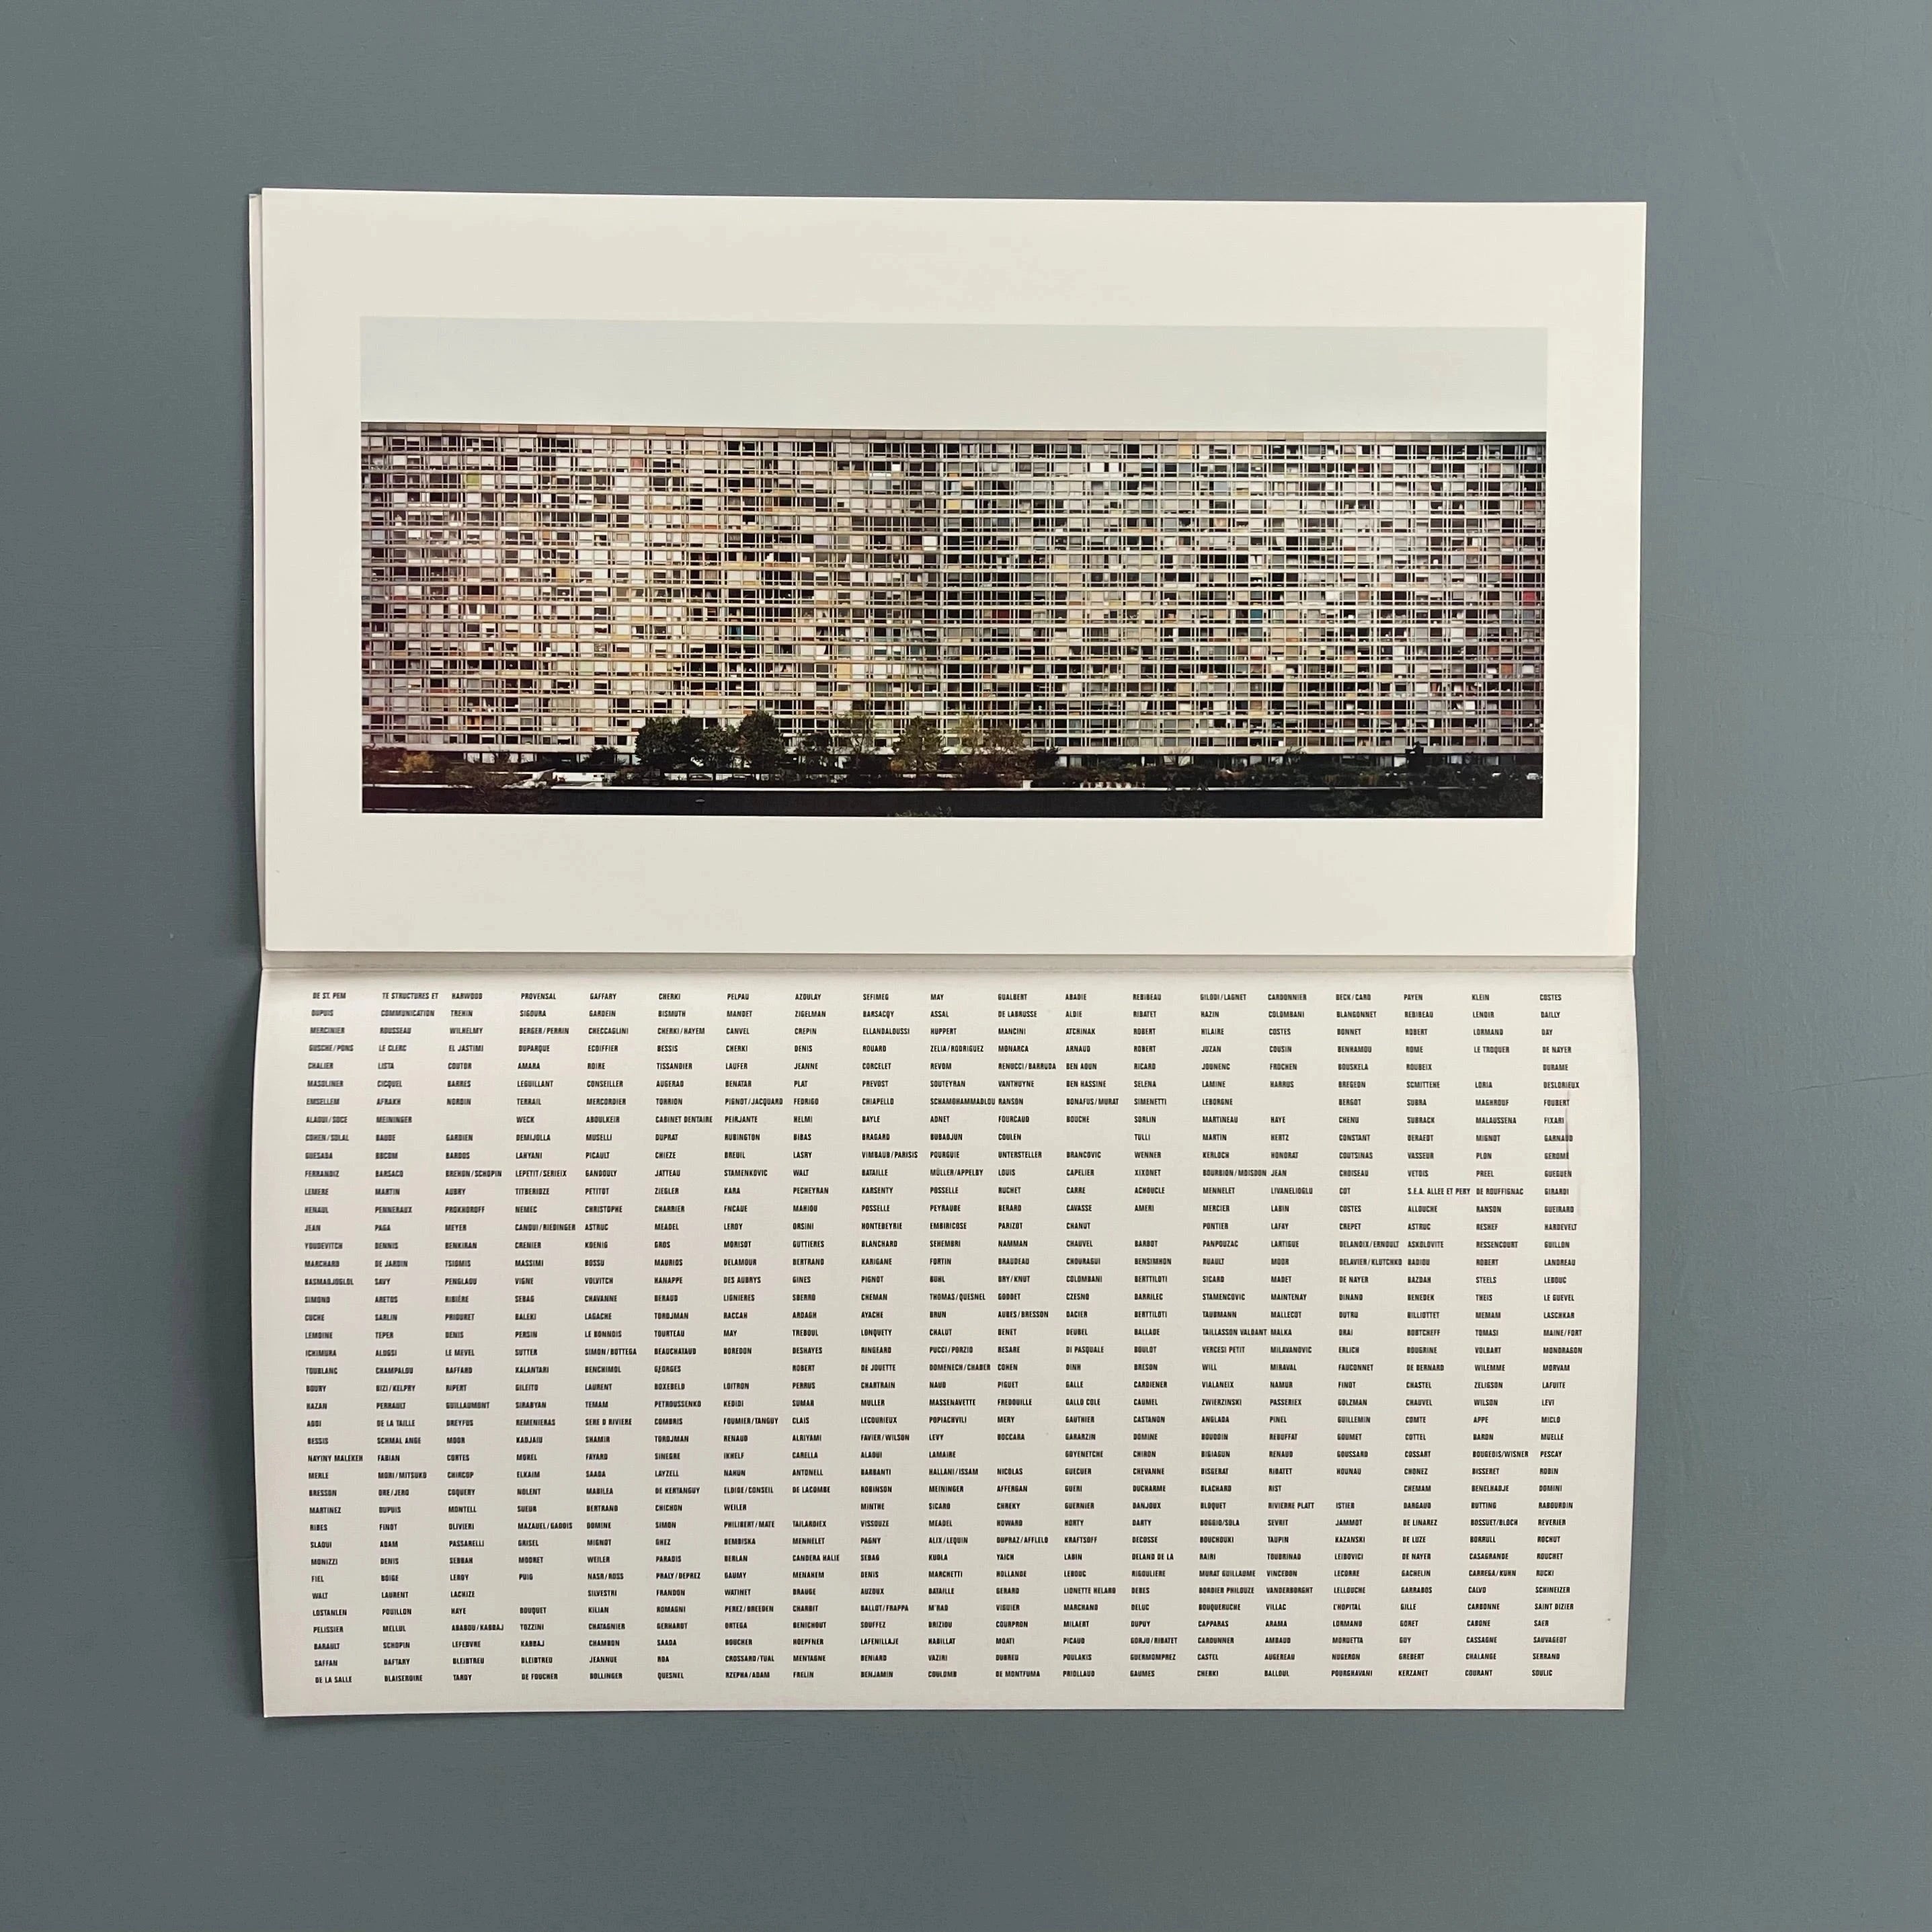 DE ST. PEM TE STRUCTURES ET HARWOOD PROVENSAL GAFFARY CHERKI PELPAU AZOULAY SEFIMEG MAY GUALBERT ABADIE REBIBEAU GILODI/LAGNET CARDONNIER BECK/CARO PAYEN KLEIN COSTES
DUPUIS COMMUNICATION TREHIN SIGOURA GARDEIN BISMUTH MANDET ZIGELMAN BARSACQY ASSAL DE LABRUSSE ALDIE RIBATET HAZIN COLOMBANI BLANGONNET REBIBEAU LENOIR DAILLY
MERCINIER ROUSSEAU WILHELMY BERGER/PERRIN CHECCAGLINI CHERKI/HAYEM CANVEL CREPIN ELLANDALOUSSI HUPPERT MANCINI ATCHINAK ROBERT HILAIRE COSTES BONNET ROBERT LORMAND DAY
GUSCHE/PONS LE CLERC EL JASTIMI DUPARQUE ECOIFFIER BESSIS CHERKI DENIS ROUARD ZELIA/RODRIGUEZ MONARCA ARNAUD ROBERT JUZAN COUSIN BENHAMOU ROME LE TROQUER DE NAYER
CHALIER LISTA COUTOR AMARA ROIRE TISSANDIER LAUFER JEANNE CORCELET REVOM RENUCCI/BARRUDA BEN AOUN RICARD JOUNENC FROCHEN BOUSKELA ROUBEIX DURAME
MASOLINER CICQUEL BARRES LEGUILLANT CONSEILLER AUGERAO BENATAR PLAT PREVOST SOUTEYRAN VANTHUYNE BEN HASSINE SELENA LAMINE HARRUS BREGEON SCMITTEHE LORIA DESLORIEUX
EMSELLEM AFRAKH NORDIN TERRAIL MERCORDIER TORRION PIGNOT/JACQUARD FEDRIGO CHIAPELLO SCHAMOHAMMADLOU RANSON BONAFUS/MURAT SIMENETTI LEBORGNE BERGOT SUBRA MAGHROUF FOUBERT
ALAOUI/SOCE MEININGER WECK ABOULKEIR CABINET DENTAIRE PEIRJANTE HELMI BAYLE ADNET FOURCAUD BOUCHE SORLIN MARTINEAU HAYE CHENU SUBRACK MALAUSSENA FIXARI
COHEN/SOLAL BAUDE GARDIEN DEMIJOLLA MUSELLI DUPRAT RUBINGTON BIBAS BRAGARD BUBADJUN COULEN TULLI MARTIN HERTZ CONSTANT DERAEDT MIGNOT GARNAUD
GUESADA BBCOM BARDOS LAHYANI PICAULT CHIEZE BREUIL LASRY VIMBAUD/PARISIS POURGUIE UNTERSTELLER BRANCOVIC WENNER KERLOCH HONORAT COUTSINAS VASSEUR PLON GEROME
FERRANDIZ BARSACQ BREHON/SCHOPIN LEPETIT/SERIEIX GANDOULY JATTEAU STAMENKOVIC WALT BATAILLE MÜLLER/APPELBY LOUIS CAPELIER XIXONET BOURBION/MOISDON JEAN CHOISEAU VETOIS PREEL GUEGUEN
LEMERE MARTIN AUBRY TITBERIDZE PETITOT ZIEGLER KARA PECHEYRAN KARSENTY POSSELLE RUCHET CARRE ACHOUCLE MENNELET LIVANELIOGLU COT S.E.A. ALLEE ET PERY DE ROUFFIGNAC GIRARDI
HENAUL PENNERAUX PROKHOROFF NEMEC CHRISTOPHE CHARRIER FNCAUE MAHIOU POSSELLE PEYRAUBE BERARD CAVASSE AMERI MERCIER LABIN COSTES ALLOUCHE RANSON GUEIRARD
JEAN PAGA MEYER CANOUI/RIEDINGER ASTRUC MEADEL LEROY ORSINI HONTEBEYRIE EMBIRICOSE PARIZOT CHANUT PONTIER LAFAY CREPET ASTRUC RESHEF HARDEVELT
YOUDEVITCH DENNIS BENKIRAN CRENIER KOENIG GROS MORISOT GUTTIERES BLANCHARD SEHEMBRI NAMMAN CHAUVEL BARBOT PANPOUZAC LARTIGUE DELANOIX/ERNOULT ASKOLOVITE RESSENCOURT GUILLON
MARCHARD DE JARDIN TSIOMIS MASSIMI BOSSU MAURIOS DELAMOUR BERTRAND KARIGANE FORTIN BRAUDEAU CHOURAGUI BENSIMHON RUAULT MOOR DELAVIER/KLUTCHKO BADIOU ROBERT LANDREAU
BASMADJOGLOL SAVY PENGLAOU VIGNE VOLVITCH HANAPPE DES AUBRYS GINES PIGNOT BUHL BRY/KNUT COLOMBANI BERTTILOTI SICARD MADET DE NAYER BAZDAH STEELS LEDOUC
SIMOND ARETOS RIBIÈRE SEBAG CHAVANNE BERAUD LIGNIERES SBERRO CHEMAN THOMAS/QUESNEL GODDET CZESNO BARRILEC STAMENCOVIC MAINTENAY DINAND BENEDEK THEIS LE GUEVEL
CUCHE SARLIN PRIOURET BALEKI LAGACHE TORDJMAN RACCAH ARDAGH AYACHE BRUN AUBES/BRESSON DACIER BERTTILOTI TAUBMANN MALLECOT DUTRU BILLIOTTET MEMAM LASCHKAR
LEMOINE TEPER DENIS PERSIN LE BONNOIS TOURTEAU MAY TREBOUL LONQUETY CHALUT BENET DEUBEL BALLADE TAILLASSON VALDANT MALKA DRAI BOBTCHEFF TOMASI MAINE/FORT
ICHIMURA ALOGSI LE MEVEL SUTTER SIMON/BOTTEGA BEAUCHATAUD BOREDON DESHAYES RINGEARD PUCCI/PORZIO RESARE DI PASQUALE BOULOT VERCESI PETIT MILAVANOVIC ERLICH BOUGRINE VOLBART MONDRAGON
TOUBLANC CHAMPALOU RAFFARD KALANTARI BENCHIMOL GEORGES ROBERT DE JOUETTE DOMENECH/CHABER COHEN DINH BRESON WILL MIRAVAL FAUCONNET DE BERNARD WILEMME MORVAM
BOURY BIZI/KELPRY RIPERT GILEITO LAURENT BOXEBELD LOITRON PERRUS CHARTRAIN NAUD PIGUET GALLE CARDIENER VIALANEIX NAMUR FINOT CHASTEL ZELIGSON LAFUITE
HAZAN PERRAULT GUILLAUMONT SIRABYAN TEMAM PETROUSSENKO KEDIDI SUMAR MULLER MASSENAVETTE FREDOUILLE GALLO COLE CAUMEL ZWIERZINSKI PASSERIEX GOLZMAN CHAUVEL WILSON LEVI
ADDI DE LA TAILLE DREYFUS REMENIERAS SERE D RIVIERE COMBRIS FOUMIER/TANGUY CLAIS LECOURIEUX POPIACHVILI MERY GAUTHIER CASTANON ANGLADA PINEL GUILLEMIN COMTE APPE MICLO
BESSIS SCHMAL ANGE MOOR KADJAIU SHAMIR TORDJMAN RENAUD ALRIYAMI FAVIER/WILSON LEVY BOCCARA GARARZIN DOMINE BOUDOIN REBUFFAT GOUMET COTTEL BARON MUELLE
NAYINY MALEKEH FABIAN CORTES MOREL FAYARD SINEGRE IKHELF CARELLA ALAOUI LAMAIRE GOYENETCHE CHIRON BIGIAGUN RENAUD GOUSSARD COSSART BOUGEDIS/WISNER PESCAY
MERLE MORI/MITSUKO CHIRCOP ELKAIM SAADA LAYZELL NAHUN ANTONELL BARBANTI HALLANI/ISSAM NICOLAS GUECUER CHEVANNE BISGERAT RIBATET HOUNAU CHONEZ BISSERET ROBIN
BRESSON DRE/JERO COQUERY NOLENT MABILEA DE KERTANGUY ELDIDE/CONSEIL DE LACOMBE ROBINSON MEININGER AFFERGAN GUERI DUCHARME BLACHARD RIST CHEMAM BENELHADJE DOMINI
MARTINEZ DUPUIS MONTELL SUEUR BERTRAND CHICHON WEILER MINTHE SICARD CHREKY GUERNIER DANJOUX BLOQUET RIVIERRE PLATT ISTIER DARGAUD BUTTING RABOURDIN
RIBES FINOT OLIVIERI MAZAUEL/GADOIS DOMINE SIMON PHILIBERT/MATE TAILARDIEX VISSOUZE MEADEL HOWARD HORTY DARTY BOGGIO/SOLA SEVRIT JAMMOT DE LINAREZ BOSSUET/BLOCH REVERIER
SLAOUI ADAM PASSARELLI GRISEL MIGNOT GHEZ DEMBISKA MENNELET PAGNY ALIX/LEQUIN DUPRAZ/AFFLELO KRAFTSOFF DECOSSE BOUCHOUKI TAUPIN KAZANSKI DE LUZE BORRULL ROCHUT
MONIZZI DENIS SEBBAH MOORET WEILER PARADIS BERLAN CANDERA HALIE SEBAG KUOLA YAICH LABIN DELAND DE LA RAIRI TOUBRINAD LEIBOVICI DE NAYER CASAGRANDE ROUCHET
FIEL BOIGE LEROY PUIG NASR/ROSS PRALY/DEPREZ GAUMY MENAHEM DENIS MARCHETTI HOLLANDE LEBOUC RIGOULIERE MURAT GUILLAUME VINCEDON LECORRE GACHELIN CARREGA/KUHN RUCKI
WALT LAURENT LACHIZE SILVESTRI FRANDON WATINET BRAUGE AUZOUX BATAILLE GERARD LIONETTE HELARD DEBES BORDIER PHILOUZE VANDERBORGHT LELLOUCHE GARRABOS CALVO SCHINEIZER
LOSTANLEN POUILLON HAYE BOUQUET KILIAN ROMAGNI PEREZ/BREEDEN CHARBIT BALLOT/FRAPPA M'BAD VIGUIER MARCHAND DELUC BOUQUERUCHE VILLAC L'HOPITAL GILLE CARBONNE SAINT DIZIER
PELISSIER MELLUL ABABOU/KABBAJ TOZZINI CHATAGNIER GERHARDT ORTEGA BENICHOUT SOUFFEZ BRIZIOU COURPRON MILAERT DUPUY CAPPARAS ARAMA LORMAND GORET CABONE SAER
BARAULT SCHOPIN LEFEBVRE KABBAJ CHAMBON SAADA BOUCHER HOEPFNER LAFENILLAJE HABILLAT MOATI PICAUD GORJU/RIBATET CARDUNNER AMBAUD MORUETTA GUY CASSAGNE SAUVAGEOT
SAFFAN DAFTARY BLEIBTREU BLEIBTREU JEANNUE ROA CROSSARD/TUAL MENTAGNE BENIARD VAZIRI DUBREU POULAKIS GUERMOMPREZ CASTEL AUGEREAU NUGERON GREBERT CHALANGE SERRAND
DE LA SALLE BLAISEROIRE TARDY DE FOUCHER BOLLINGER QUESNEL RZEPHA/ADAM FRELIN BENJAMIN COULOMB DE MONTFUMA PRIOLLAUD GAUMES CHERKI BALLOUL POURGHAVANI KERZANET COURANT SOULIC